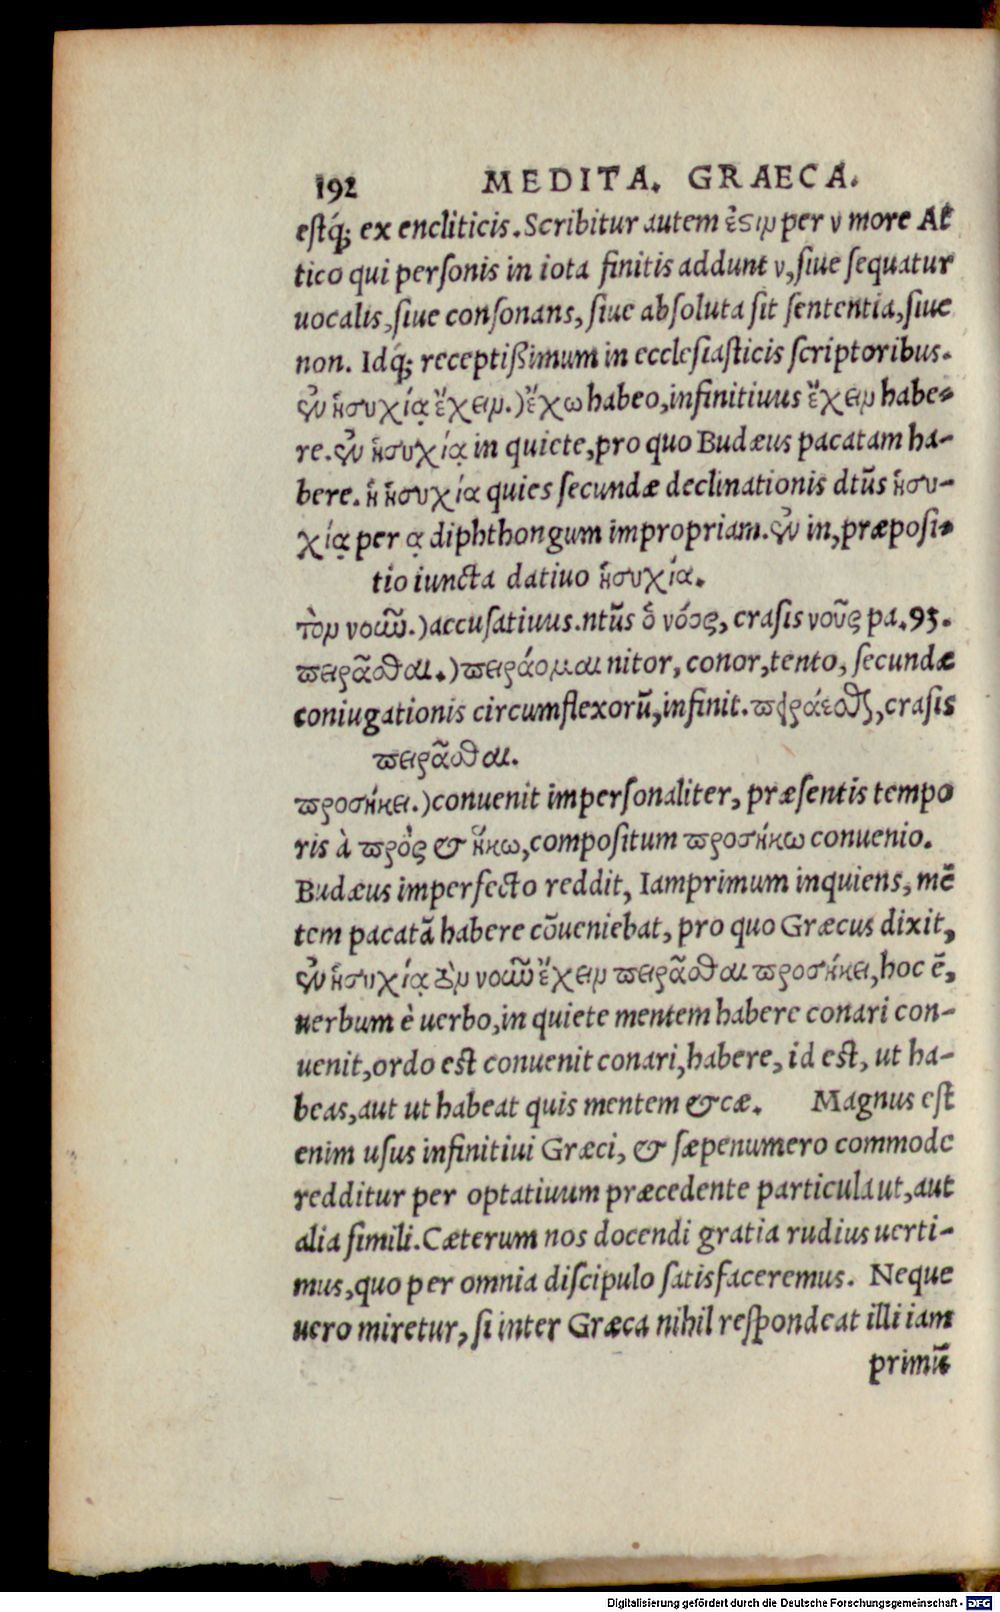 192 MEDITA. GRAECA.
estq́; ex encliticis. Scribitur autem ἐϛιν per ν more At
tico qui personis in iota finitis addunt ν, siue sequatur
uocalis, siue consonans, siue absoluta sit sententia, siue
non. Idq́; receptißimum in ecclesiasticis scriptoribus.
ἐν ἡσυχίᾳ ἔχειν.) ἔχω habeo, infinitiuus ἔχειν habe-
re. ἐν ἡσυχίᾳ in quiete, pro quo Budæus pacatam ha-
bere. ἡ ἡσυχία quies secundæ declinationis dtũs ἡσυ-
χίᾳ per ᾳ diphthongum impropriam. ἐν in, præposi-
tio iuncta datiuo ἡσυχίᾳ.
τὸν νοῦν.) accusatiuus. ntũs ὁ νόος, crasis νοῦς pa. 93.
πειρᾶσθαι.) πειράομαι nitor, conor, tento, secundæ
coniugationis circumflexorũ, infinit. πειράεσθαι, crasis
πειρᾶσθαι.
προσήκει.) conuenit impersonaliter, præsentis tempo
ris à πρὸς & ἥκω, compositum προσήκω conuenio.
Budæus imperfecto reddit, Iamprimum inquiens, mẽ
tem pacatã habere cõueniebat, pro quo Græcus dixit,
ἐν ἡσυχίᾳ τὸν νοῦν ἔχειν πειρᾶσθαι προσήκει, hoc ẽ,
uerbum è uerbo, in quiete mentem habere conari con-
uenit, ordo est conuenit conari, habere, id est, ut ha-
beas, aut ut habeat quis mentem &cæ. Magnus est
enim usus infinitiui Græci, & sæpenumero commode
redditur per optatiuum præcedente particula ut, aut
alia simili. Cæterum nos docendi gratia rudius uerti-
mus, quo per omnia discipulo satisfaceremus. Neque
uero miretur, si inter Græca nihil respondeat illi iam
primũ
Digitalisierung gefördert durch die Deutsche Forschungsgemeinschaft - DFG